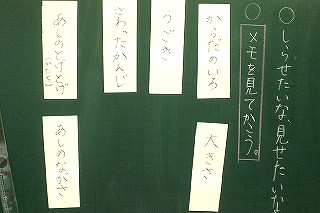 ○しらせたいな、見せたいな
○メモを見てかこう。
からだのいろ
大きさ
うごき
さわったかんじ
あしのとげとげ
あしのながさ